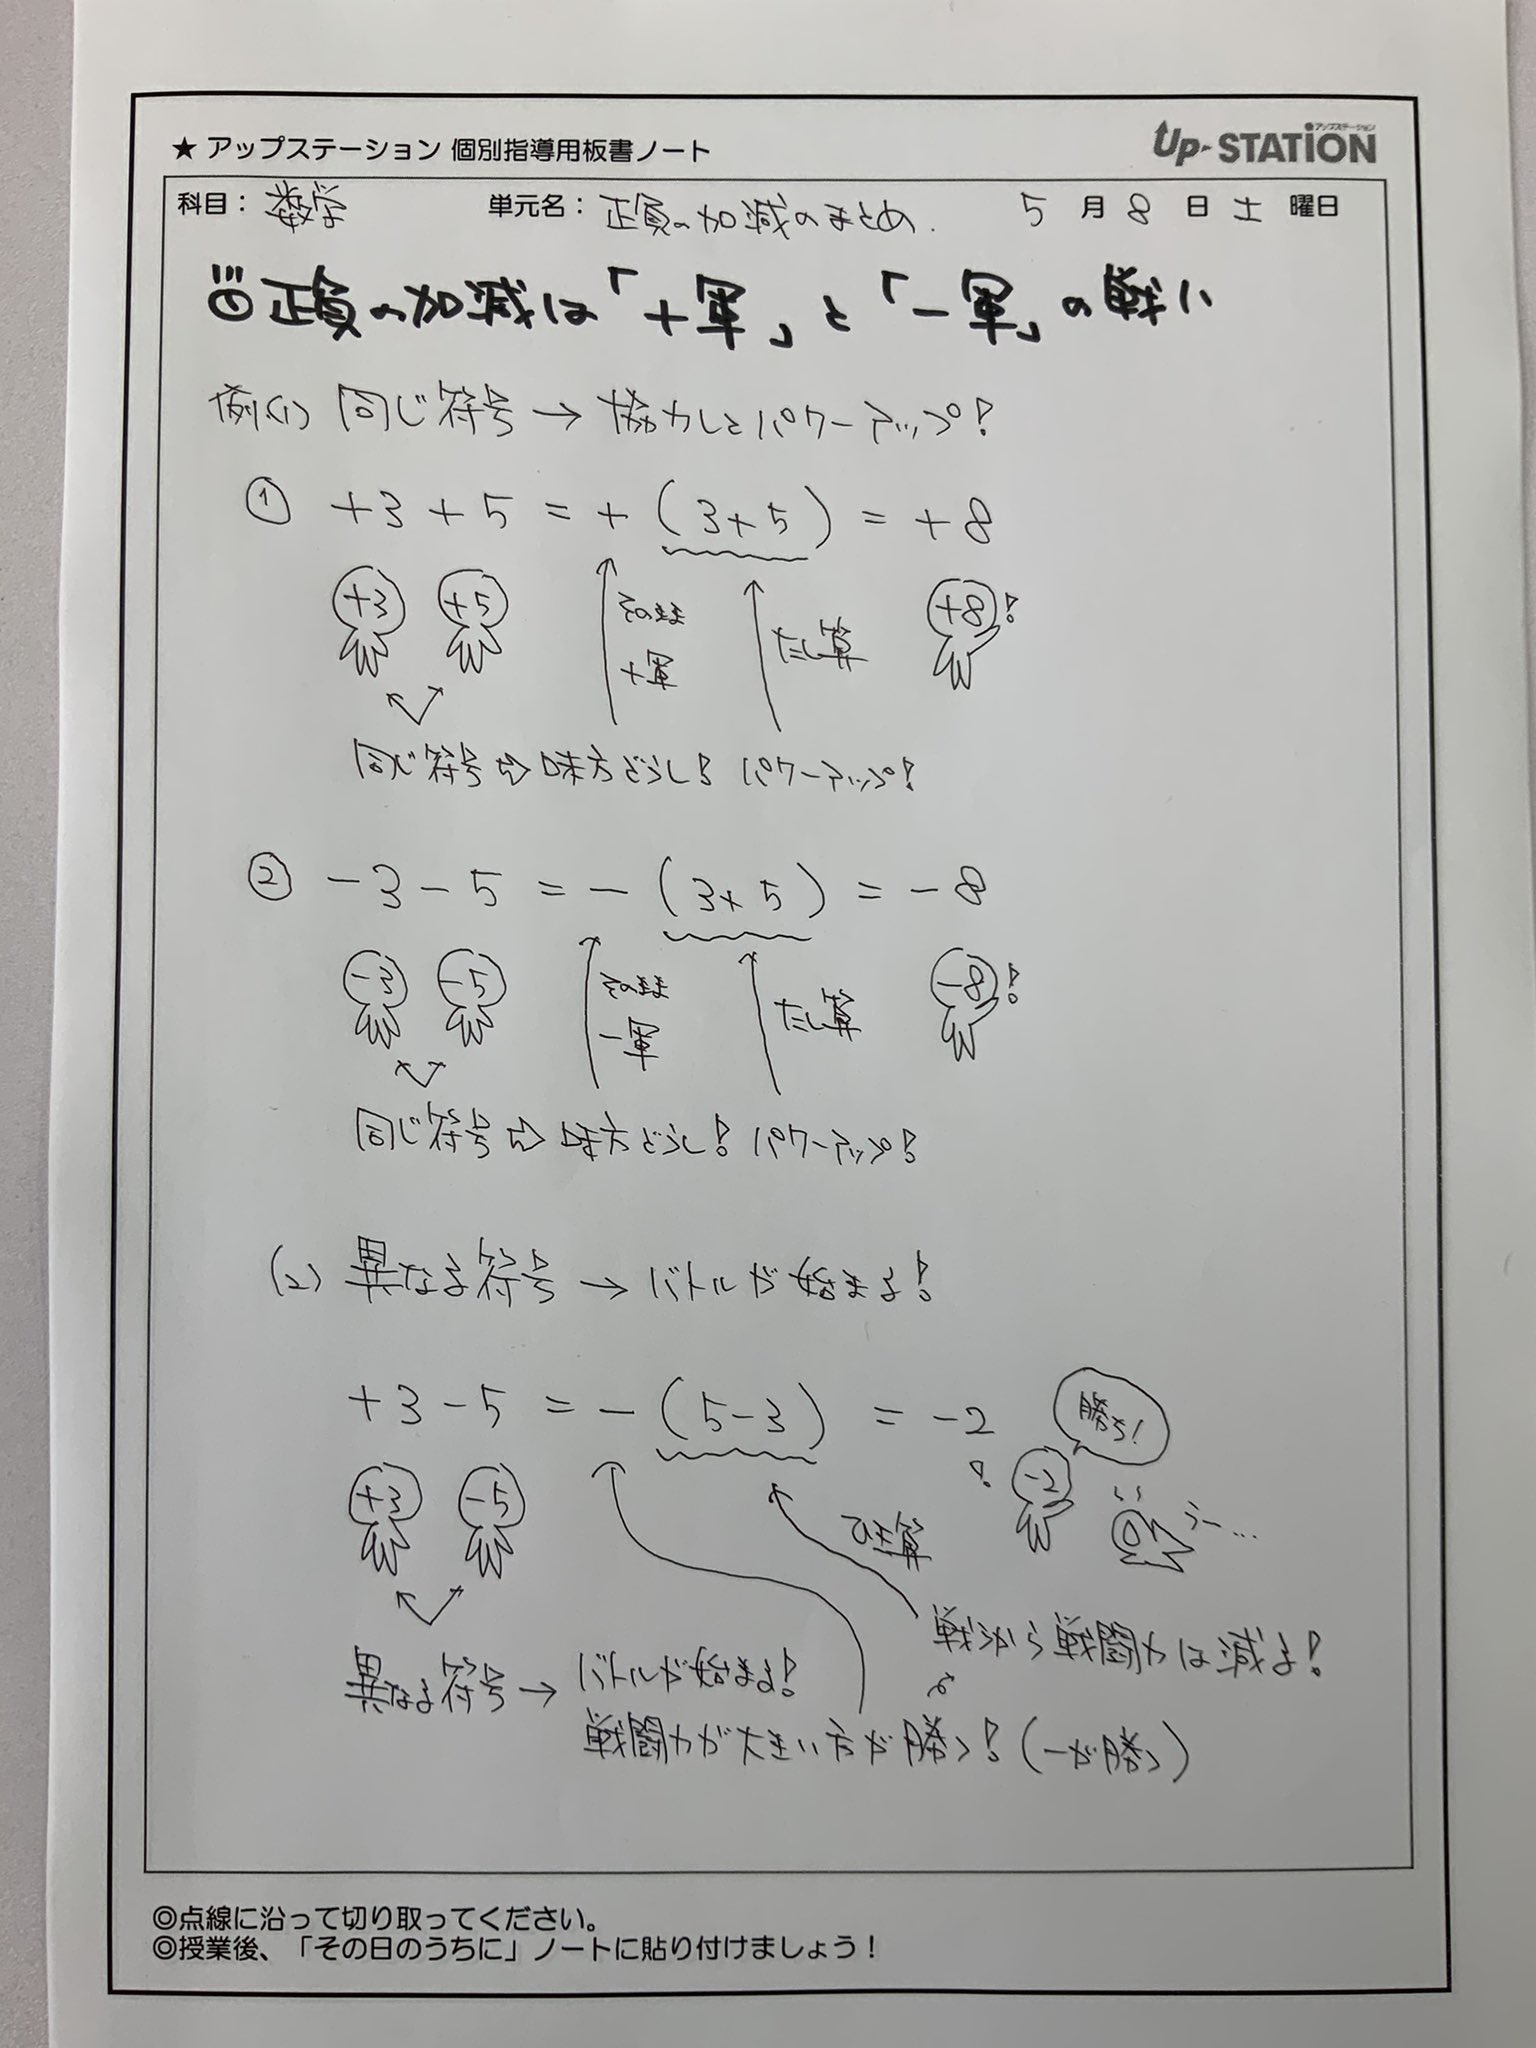 ★ アップステーション 個別指導用板書ノート
アップステーション
Up-STATION
科目：数学 単元名：正負の加減のまとめ. 5月8日土曜日
正負の加減は「+軍」と「-軍」の戦い
例(1) 同じ符号→協力してパワーアップ!
① +3+5=+(3+5)=+8
+3 +5 そのまま +軍 たし算 +8!
同じ符号⇨味方どうし! パワーアップ!
② -3-5=-(3+5)=-8
-3 -5 そのまま -軍 たし算 -8!
同じ符号⇨味方どうし! パワーアップ!
(2) 異なる符号→バトルが始まる!
+3-5=-(5-3)=-2
勝ち!
+3 -5 ひき算 ! -2 うー…
戦うから戦闘力は減る!
異なる符号→バトルが始まる!
戦闘力が大きい方が勝つ!(-が勝つ)
◎点線に沿って切り取ってください。
◎授業後、「その日のうちに」ノートに貼り付けましょう！